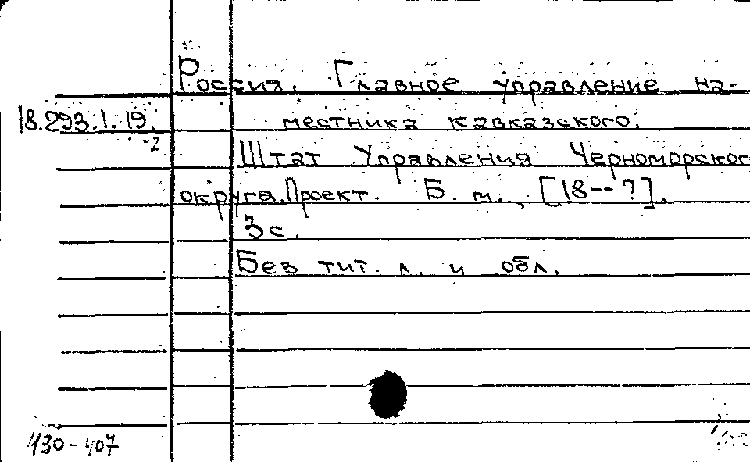 Россия. Главное управление на-
18.293.1.19. местника кавказского.
2
Штат Управления Черноморского
округа. Проект. Б. м., [18--?].
3 с.
Без тит. л. и обл.
430-407